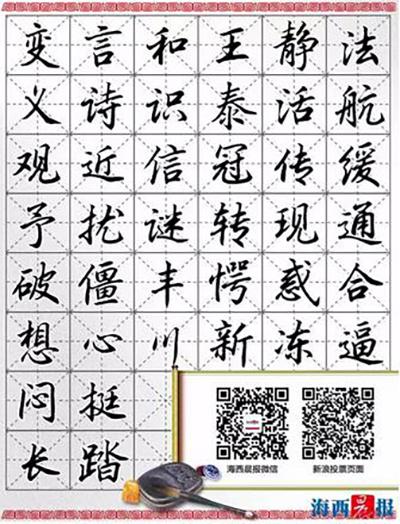 变言和王静法
义诗识泰活航
观近信冠传缓
予扰谜转现通
破僵丰愕惑合
想心川新冻逼
闷挺
长踏
海西晨报微信 新浪投票页面
海西晨报